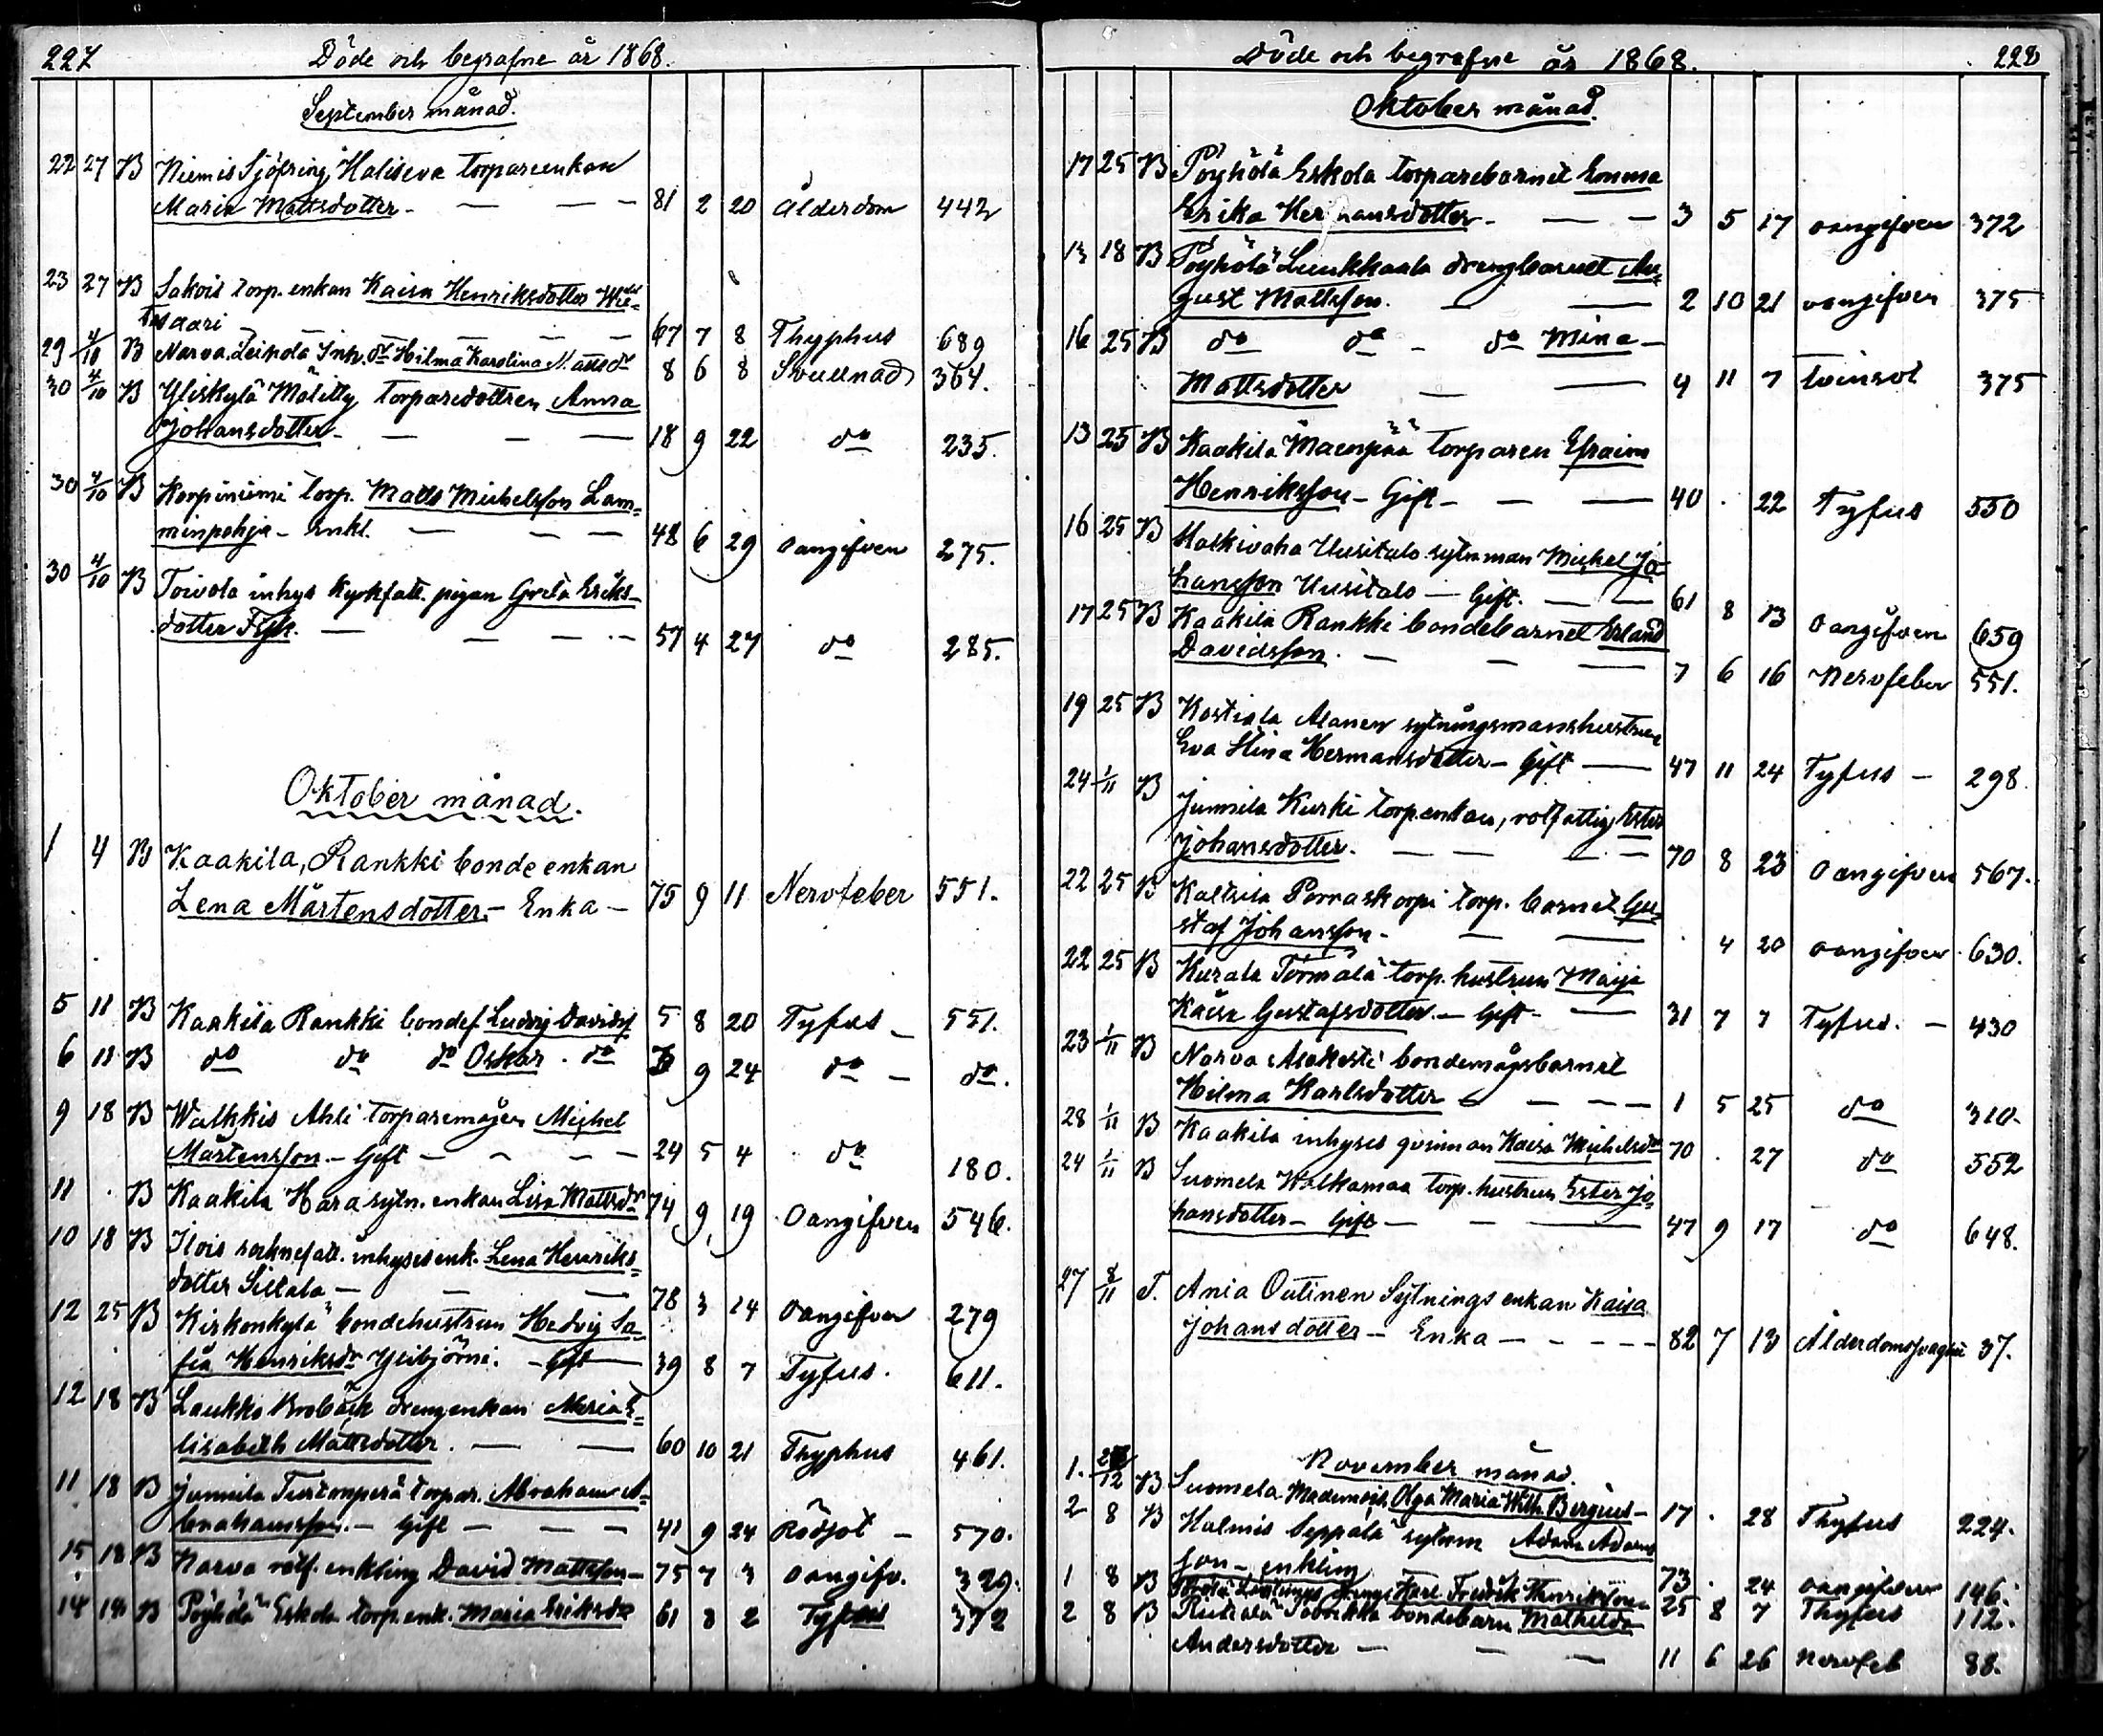 227 Döde och begrafne år 1868.
September månad.
22 27 B Niemis Sjöfring, Haliseva torpareenkan
Maria Mattsdotter - 81 2 20 Ålderdom 442
23 27 B Sakois torp. enkan Kaisa Henriksdotter
67 7 8 Thyphus 689
29 4/10 B Narva Leipola Inh. dr Hilma Karolina 8 6 8 Svullnad 364.
30 4/10 B Yliskylä torparedottren Anna
Johansdotter - 18 9 22 do 235.
30 4/10 B Korpiniemi torp. Matts Michelsson Lam-
minpohja - Enkl. 48 6 29 oangifven 275.
30 4/10 B Toivola inhys kyrkfatt. pigan Greta Eriks-
dotter 57 4 27 do 285.
Oktober månad.
1 4 B Kaakila, Rankki bonde enkan
Lena Mårtensdotter - Enka - 75 9 11 Nervfeber 551.
5 11 B Kaakila Rankki bondes. Ludvig Davidss 5 8 20 Tyfus - 551.
6 11 B do do do Oskar do 9 24 do - do.
9 18 B Walkkis Ahli torparemågen Michel
Mårtensson - Gift - 24 5 4 do 180.
11 . B Kaakila Hara sytn. enkan Lisa Mattsdr 74 9 19 Oangifven 546.
10 18 B Ilois socknefatt. inhyses enk. Lena Henriks-
dotter Siltala - 78 3 14 oangifven 279
12 25 B Kirkonkylä bondehustrun Hedvig So-
fia Henriksdr Ylibjörni. - Gift 39 8 7 Tyfus. 611.
12 18 B Laukko Brobäck drengenkan Maria E-
lisabeth Mattsdotter. 60 10 21 Thyphus 461.
11 18 B Junnila torpar. Abraham A-
brahamsson. - Gift - 41 9 24 Rödsot - 570.
15 18 B Narva rotf. enkling David Mattsson - 75 7 3 oangifv. 329.
14 18 B Pöyhölä Eskola torp. enk. Maria Eriksdr 61 8 2 Tyfus 372
Döde och begrafne år 1868. 228
Oktober månad.
17 25 B Pöyhölä Eskola torparebarnet Emma
Erika Hermansdotter - 3 5 17 oangifven 372
13 18 B Pöyhölä Luukkaala drengbarnet Au-
gust Mattsson. 2 10 21 oangifven 375
16 25 B do do - do Mina -
Mattsdotter 4 11 7 375
13 25 B Kaakila Mäenpää torparen Efraim
Henriksson - Gift - 40 . 22 Tyfus 550
16 25 B Uusitalo sytn.man Michel Jo-
hansson Uusitalo - Gift. 61 8 13 oangifven 659
17 25 B Kaakila Rankki bondebarnet Erland
Davidsson. 7 6 16 Nervfeber 551.
19 25 B Kostiala Alanen sytningsmanshustrun
Eva Stina Hermansdotter - Gift 47 11 24 Tyfus - 298.
24 1/11 B Junnila Kurki torp.enkan, rotfattig Ester
Johansdotter. 70 8 23 Oangifven 567.
22 25 B Kaltsila Porraskorpi torp. barnet Gu-
staf Johansson - . 4 20 oangifven 630.
22 25 B Kurala Törmälä torp. hustrun Maija
Kaisa Gustafsdotter. - Gift - 31 7 7 Tyfus. - 430
23 1/11 B Narva bondemågsbarnet
Hilma Karlsdotter 1 5 25 do 310.
28 1/11 B Kaakila inhyses qvinnan Kaisa Michelsdr 70 . 27 do 552
24 1/11 B Suomela Walkamaa torp. hustrun Ester Jo-
hansdotter - Gift - 47 9 17 do 648.
27 8/11 T. Ania Outinen Sytnings enkan Kaisa
Johansdotter - Enka - 82 7 13 37.
November månad.
1. B Suomela Mademoiselle Olga Maria Wilh. Bergius - 17 . 28 Thyfus 224.
2 8 B Halmis Seppälä sytnm Adam Adams
son - enkling 73 . 24 oangifven 146.
1 8 B drengs Karl Fredrik Henriksson 25 8 7 Thyfus 112.
2 8 B bondebarn Mathilda
Andersdotter - 11 6 26 nervfeb 88.